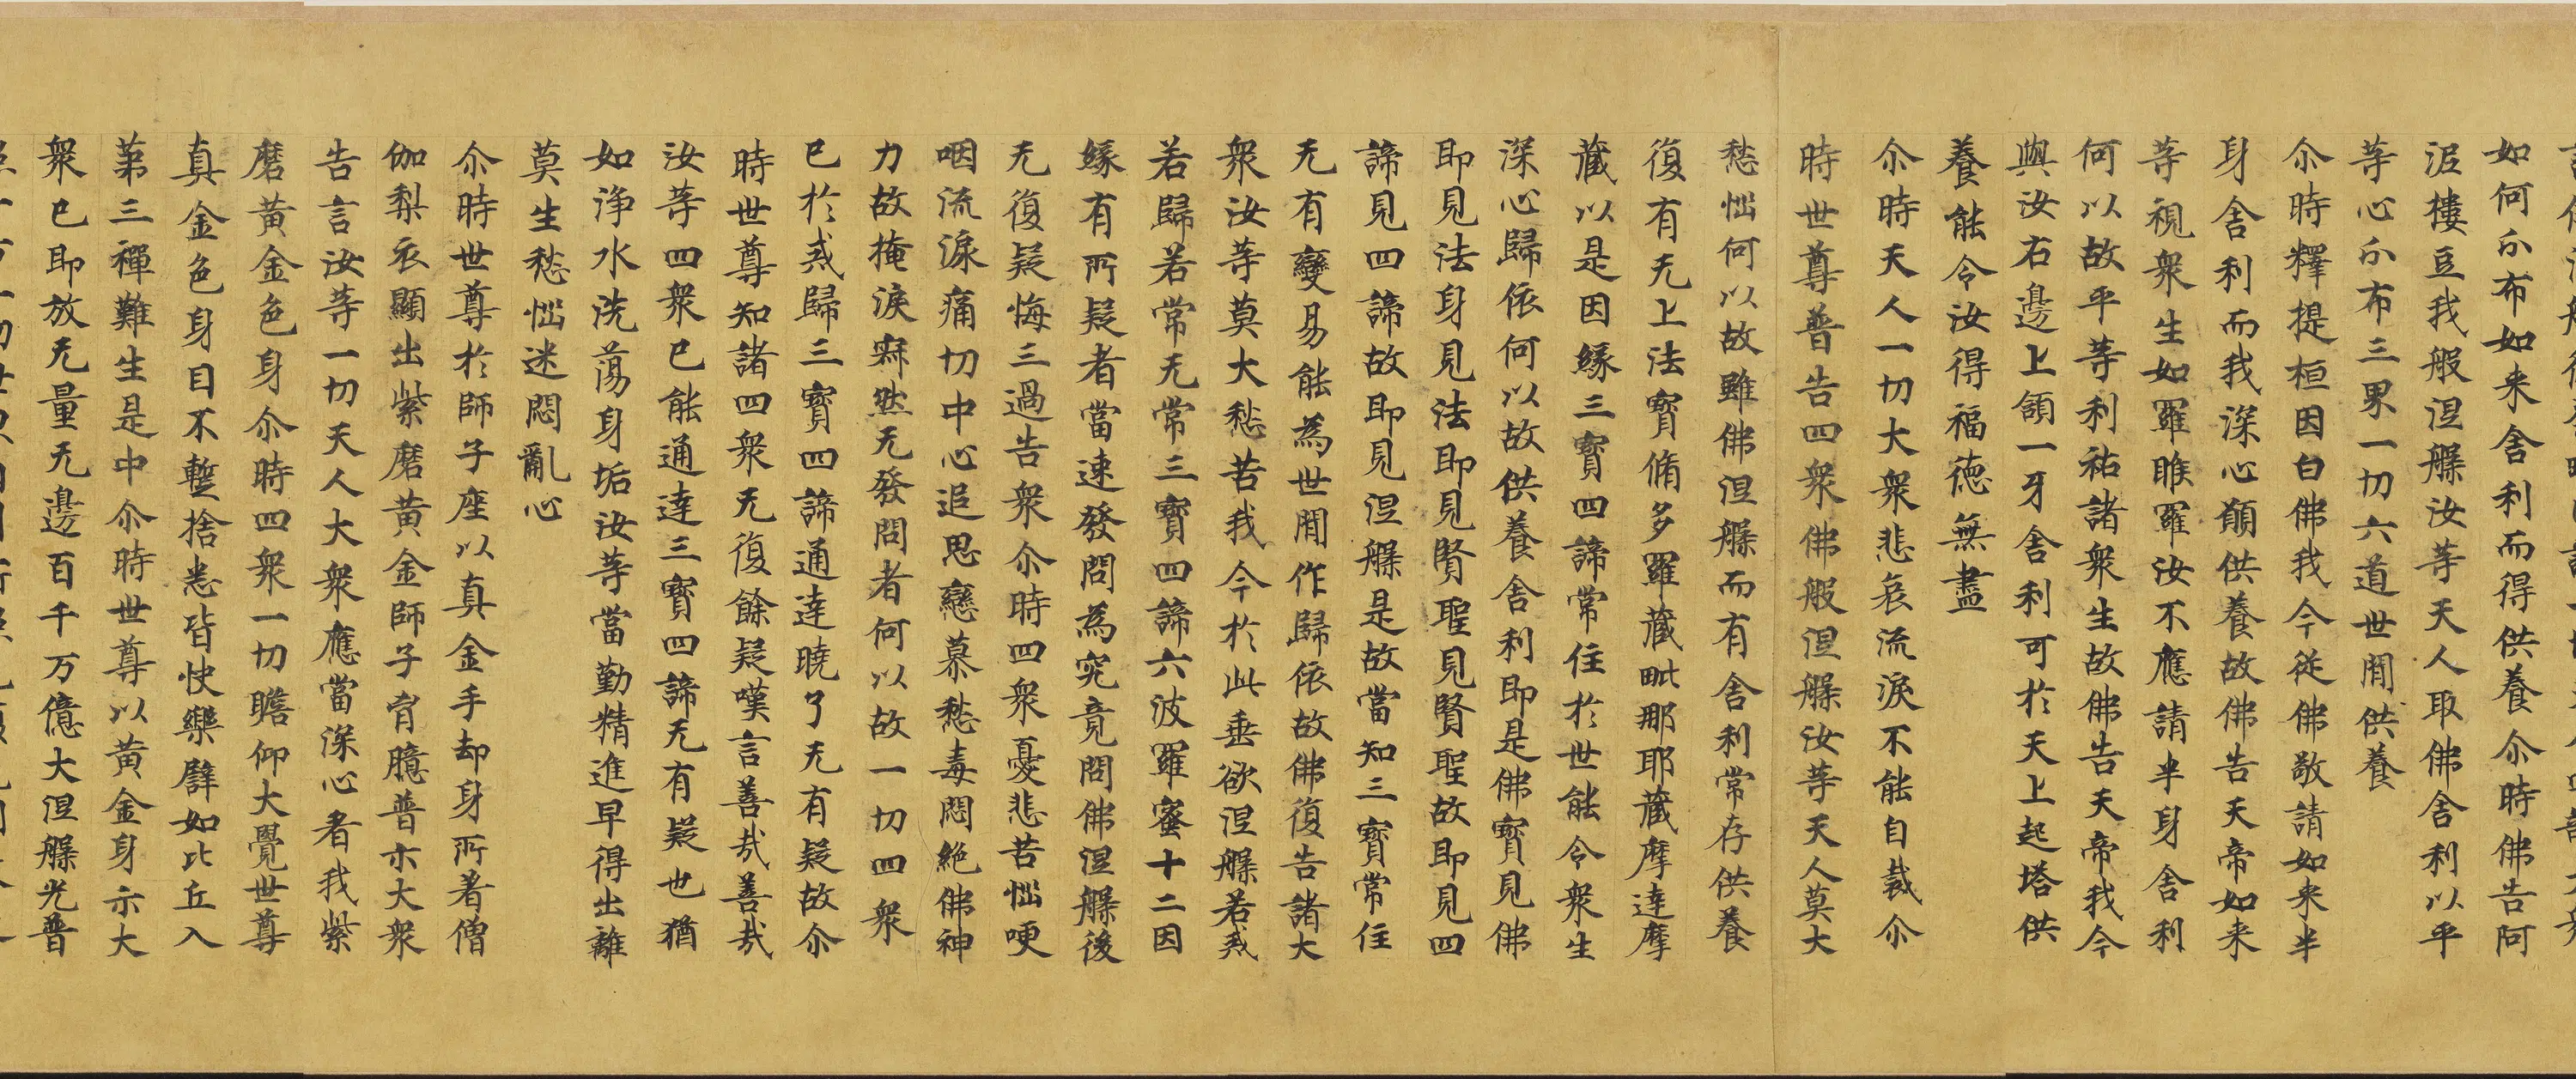 如何尒布如来舍利而得供養尒時佛告阿
泥樓豆我般涅槃汝等天人取佛舍利以平
等心尒布三界一切六道世間供養
尒時釋提桓因白佛我今従佛敬請如来半
身舍利而我深心願供養故佛告天帝如来
等視衆生如羅睺羅汝不應請半身舍利
何以故平等利祐諸衆生故佛告天帝我今
與汝右邊上頷一牙舍利可於天上起塔供
養能令汝得福德無盡
尒時天人一切大衆悲哀流淚不能自裁尒
時世尊普告四衆佛般涅槃汝等天人莫大
愁惱何以故雖佛涅槃而有舍利常存供養
復有无上法寶脩多羅藏毗那耶藏摩達摩
藏以是因緣三寶四諦常住於世能令衆生
深心歸依何以故供養舍利即是佛寶見佛
即見法身見法即見賢聖見賢聖故即見四
諦見四諦故即見涅槃是故當知三寶常住
无有變易能為世間作歸依故佛復告諸大
衆汝等莫大愁苦我今於此垂欲涅槃若戒
若歸若常无常三寶四諦六波羅蜜十二因
緣有所疑者當速發問為究竟問佛涅槃後
无復疑悔三過告衆尒時四衆憂悲苦惱哽
咽流淚痛切中心追思戀慕愁毒悶絶佛神
力故掩淚寂然无發問者何以故一切四衆
已於戒歸三寶四諦通達曉了无有疑故尒
時世尊知諸四衆无復餘疑嘆言善哉善哉
汝等四衆已能通達三寶四諦无有疑也猶
如淨水洗蕩身垢汝等當勤精進早得出離
莫生愁惱迷悶亂心
尒時世尊於師子座以真金手却身所著僧
伽梨衣顯出紫磨黄金師子胷臆普示大衆
告言汝等一切天人大衆應當深心看我紫
磨黄金色身尒時四衆一切瞻仰大覺世尊
真金色身目不蹔捨悉皆快樂譬如比丘入
第三禪難生是中尒時世尊以黄金身示大
衆已即放无量无邊百千万億大涅槃光普